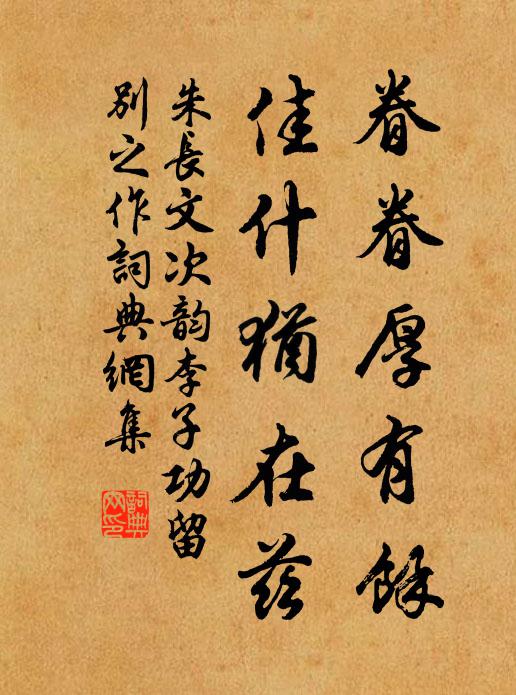 眷眷厚有餘
佳什猶在茲
朱長文次韵李子功留
別之作詞典網集
詞典
网印